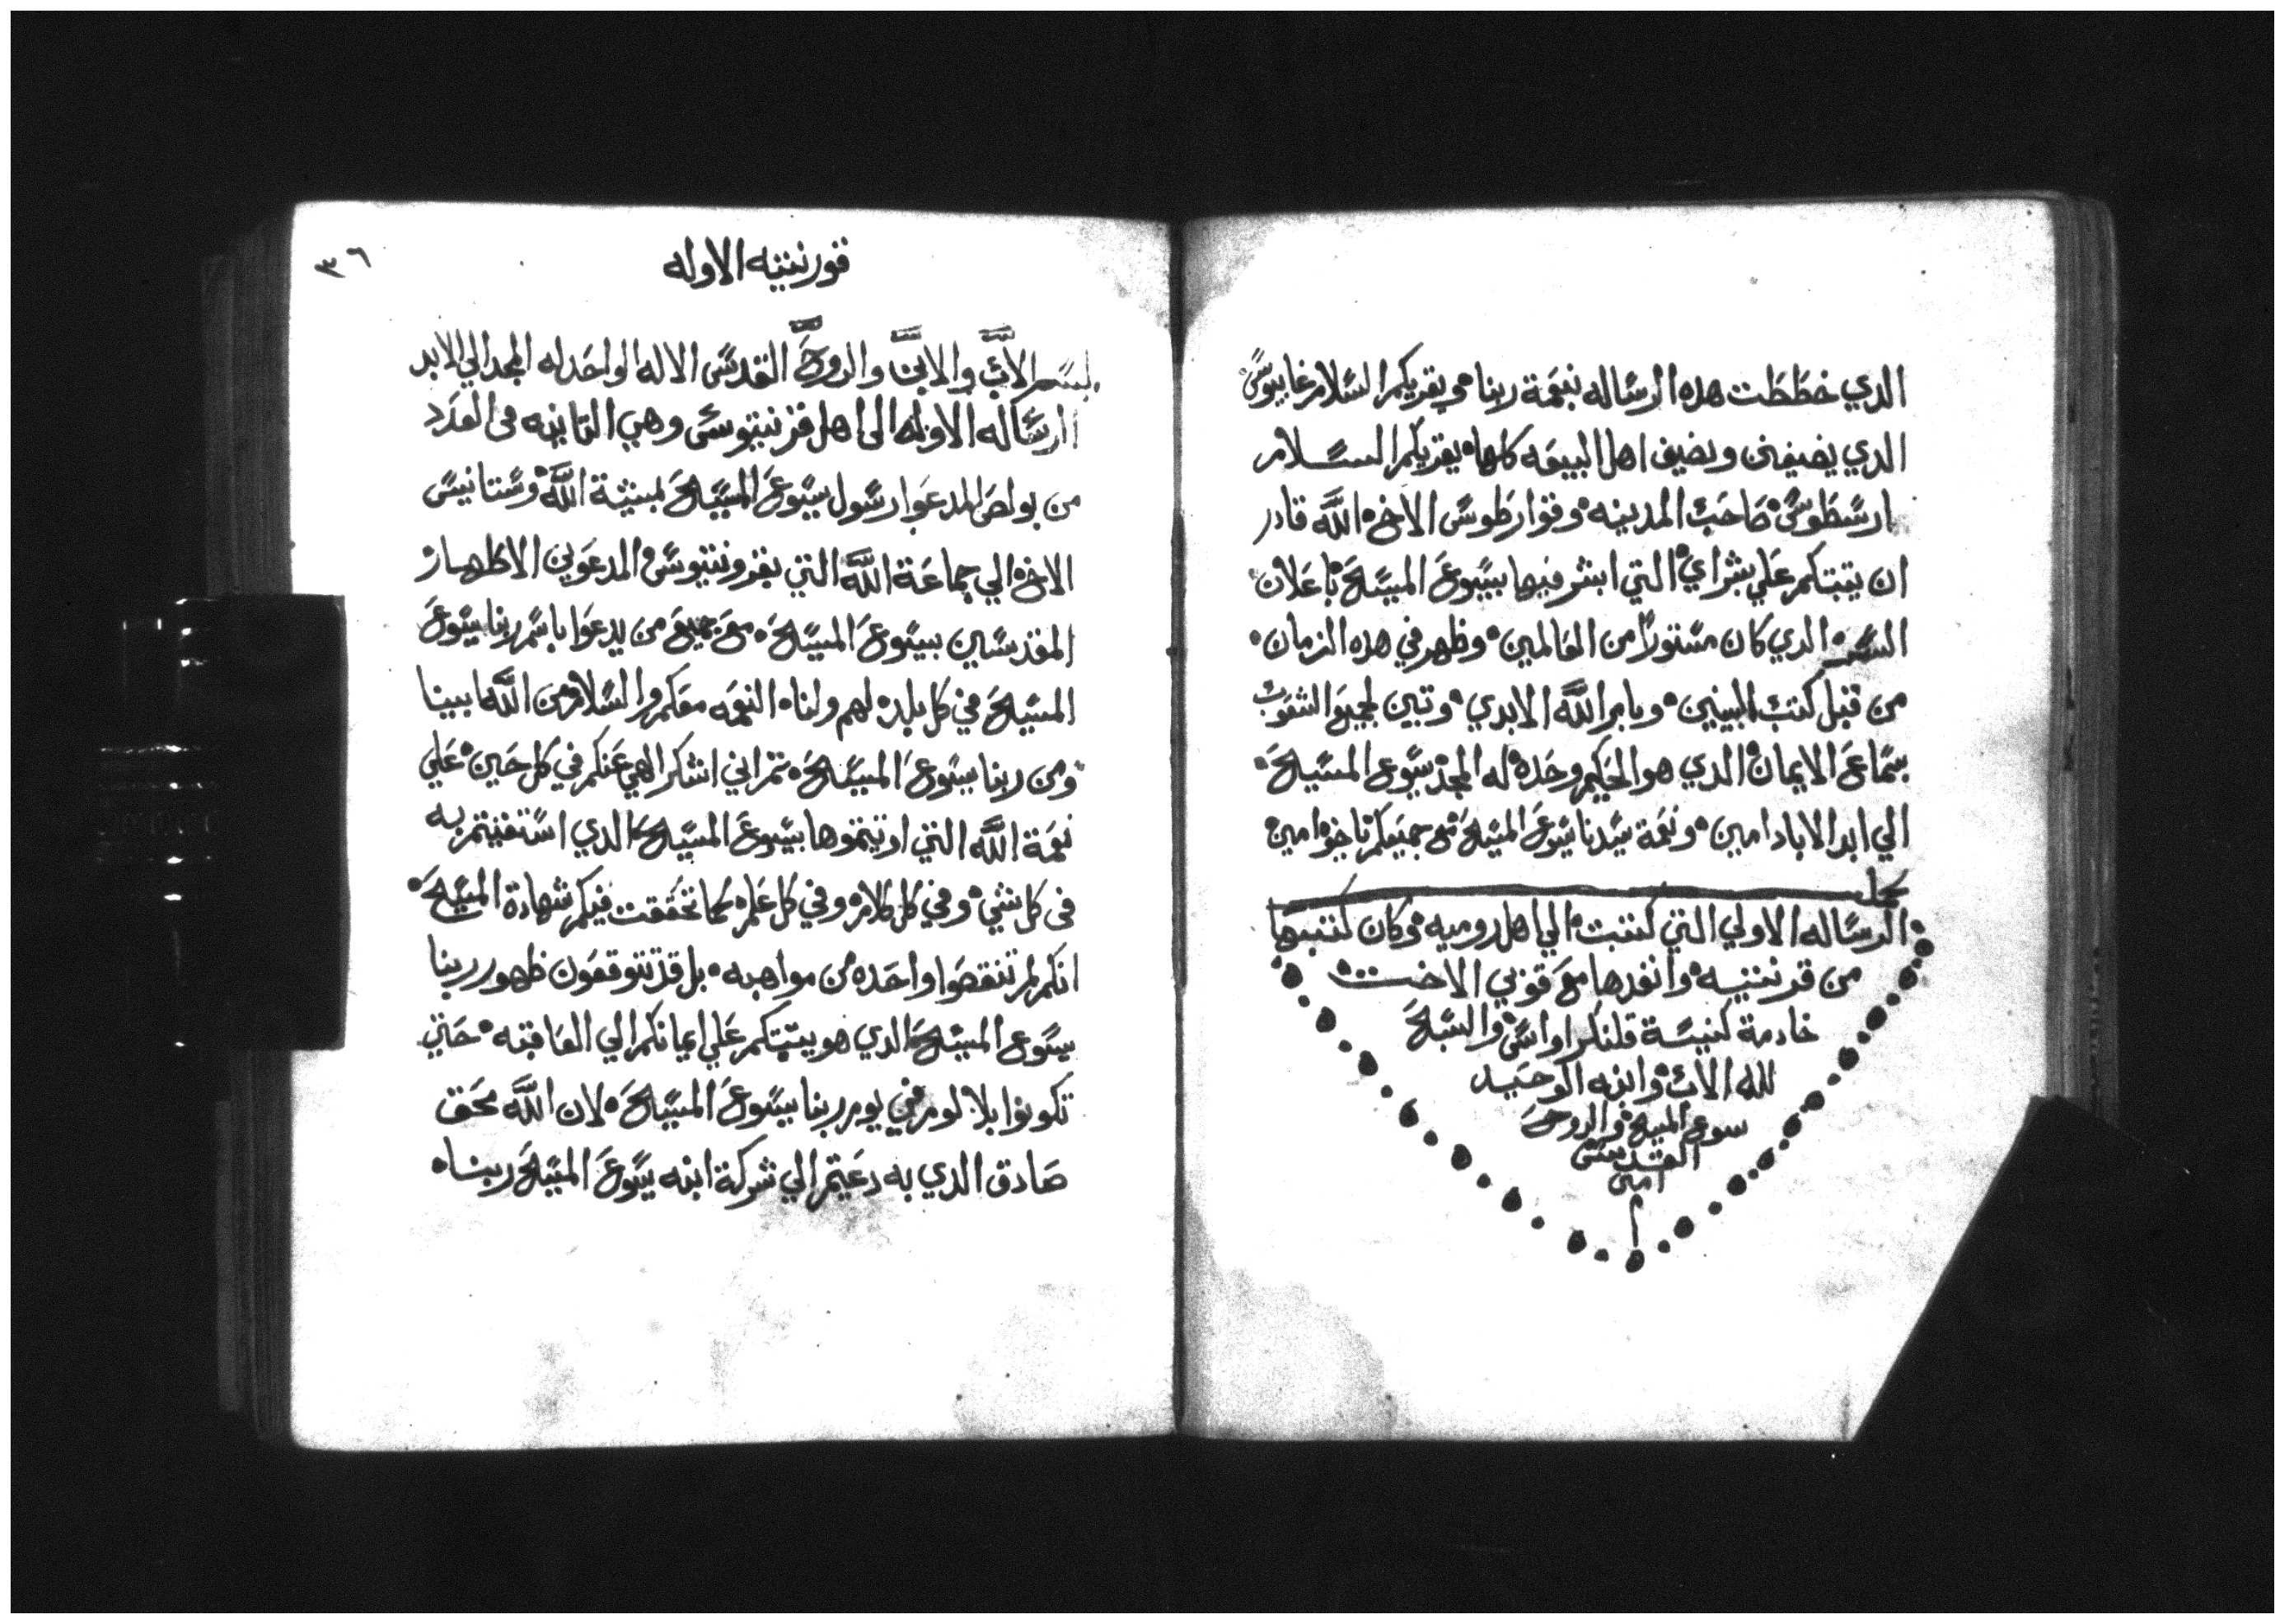 الدي خططت هده الرساله بنعمة ربنا ويقريكم السلام غايوس
الدي يضيفني ويضيف اهل البيعه كلها يقريكم السلام
ارسطوس صاحب المدينه وقوارطوس الاخ الله قادر
ان يتبتكم علي بشراي التي ابشر فيها بيسوع المسيح باعلان
السر الدي كان مستورا من العالمين وظهر في هده الزمان
من قبل كتب النبيين وبامر الله الابدي وتبين لجميع الشعوب
بسماع الايمان الدي هو الحكيم وحده له المجد يسوع المسيح
الي ابد الاباد امين ونعمة سيدنا يسوع المسيح مع جميعكم يا اخوه امين
كمل
الرساله الاولي التي كتبت الي اهل روميه وكان كتبها
من قرنتيه وانفدها مع فوبي الاخت
خادمة كنيسة قلنكراواس والسبح
لله الاب وابنه الوحيد
يسوع المسيح والروح
القدس
امين
٣٦
قورنتيه الاوله
بسم الاب والابن والروح القدس الاله الواحد له المجد الي الابد
الرساله الاوله الى اهل قرنتيوس وهي التانيه في العدد
من بولص المدعوا رسول يسوع المسيح بمشية الله وستانيس
الاخ الي جماعة الله التي بقرونتيوس المدعوين الاطهار
المقدسين بيسوع المسيح مع جميع من يدعوا باسم ربنا يسوع
المسيح في كل بلد لهم ولنا النعمه معكم والسلام من الله ابينا
ومن ربنا يسوع المسيح تم اني اشكر الهي عنكم في كل حين علي
نعمة الله التي اوتيتموها بيسوع المسيح الدي استغنيتم به
في كل شي وفي كل كلام وفي كل علم كما تحققت فيكم شهادة المسيح
انكم لم تنقصوا واحده من مواهبه بل قد تتوقعون ظهور ربنا
يسوع المسيح الدي هو يتبتكم علي ايمانكم الي العاقبه حتي
تكونوا بلا لوم في يوم ربنا يسوع المسيح لان الله محق
صادق الدي به دعيتم الي شركة ابنه يسوع المسيح ربنا